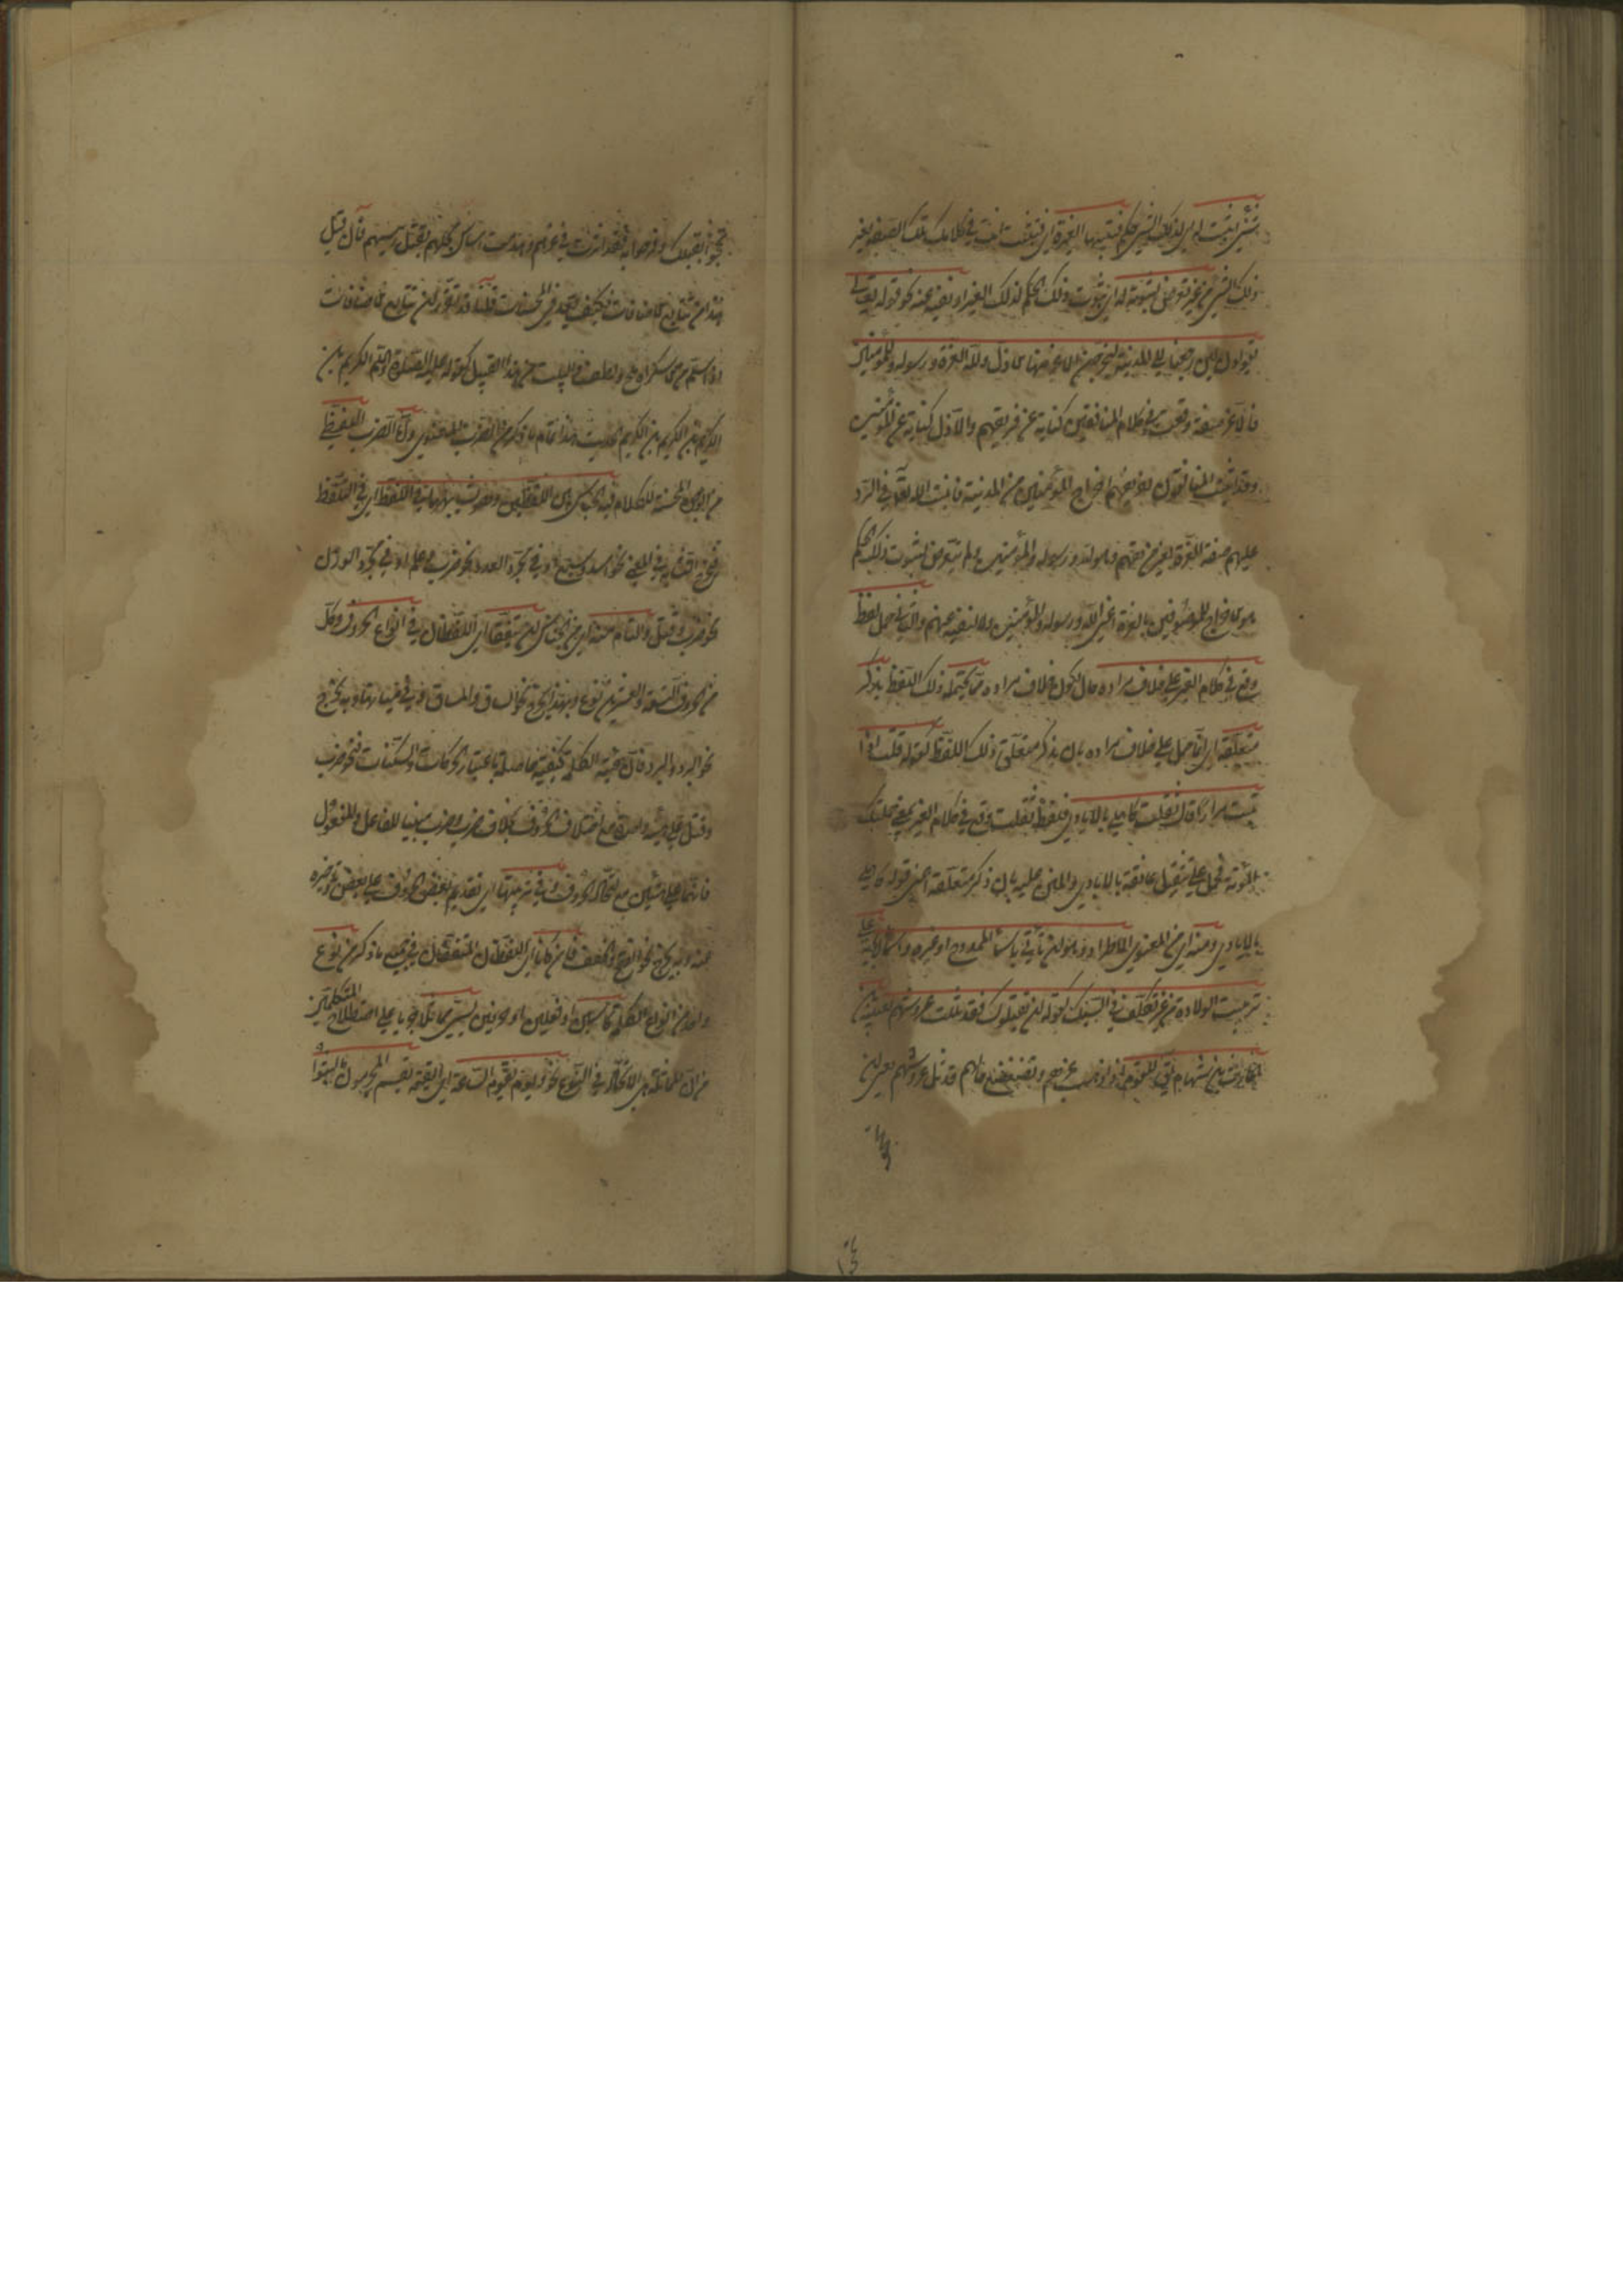 شيء اثبت له اي لذلك الشيء حكم فتثبتها لغيره اي فتثبت انت في كلامك تلك الصفة لغير
ذلك الشيء من غير تعرض لثبوته له اي ثبوت ذلك الحكم لذلك الغير او نفيه عنه نحو قوله تعالى
يقولون لئن رجعنا الى المدينة ليخرجن الاعز منها الاذل ولله العزة ورسوله وللمؤمنين
فالاعز صفة وقعت في كلام المنافقين كناية عن فريقهم والاذل كناية عن المؤمنين
وقد اثبت المنافقون لفريقهم اخراج المؤمنين من المدينة فاثبت الله تعالى في الرد
عليهم صفة العزة لغير فريقهم وهو الله ورسوله والمؤمنين ولم يتعرض لثبوت ذلك الحكم
هو الاخراج للموصوفين بالعزة اعني الله ورسوله والمؤمنين ولا لنفيه عنهم والثاني حمل لفظ
وقع في كلام الغير على خلاف مراده حال كون خلاف مراده مما يحتمله ذلك اللفظ بذكر
متعلقه اي انما حمل على خلاف مراده بان يذكر متعلق ذلك اللفظ كقوله قلت ثقلت اذا
اتيت مرارا قال ثقلت كاهلي بالايادي فلفظ ثقلت وقع في كلام الغير بمعنى حملتك
المؤنة فحمل على تثقيل عاتقه بالايادي والمنن عليه بان ذكر متعلقه اعني قوله كاهلي
بالايادي ومنه اي من المعنوي الاطراد وهو ان تأتي باسماء الممدوح او غيره واسماء آبائه على
ترتيب الولادة من غير تكلف في السبك كقوله ان يقتلوك فقد ثللت عروشهم بعتيبة بن
الحارث بن شهاب يقال للقوم اذا ذهب عزهم وتضعضع حالهم قد ثل عروشهم يعني ان
تبجحوا بقتلك وفرحوا به فقد اثرت في عزهم وهدمت اساس مجدهم بقتل رئيسهم فان قيل
هذا من تتابع الاضافات فكيف يعد في المحسنات قلنا قد تقرر ان تتابع الاضافات
اذا سلم من الاستكراه ملح ولطف والبيت من هذا القبيل كقوله عليه الصلاة والسلام الكريم بن
الكريم بن الكريم بن الكريم الحديث هذا تمام ما ذكر من الضرب المعنوي واما الضرب اللفظي
من الوجوه المحسنة للكلام فمنه الجناس بين اللفظين وهو تشابههما في اللفظ اي في التلفظ
فيخرج التشابه في المعنى نحو اسد وسبع او في مجرد العدد نحو ضرب وعلم او في مجرد الوزن
نحو ضرب وقتل والتام منه اي من الجناس ان يتفقا اي اللفظان في انواع الحروف وكل
من الحروف التسعة والعشرين نوع وبهذا يخرج نحو الساق والمساق وفي هيئاتها وبه يخرج
نحو البرد والبرد فان هيئة الكلمة كيفية حاصلة باعتبار الحركات والسكنات فنحو ضرب
وقتل على هيئة واحدة مع اختلاف الحروف بخلاف ضرب وضرب مبنيا للفاعل والمفعول
فانهما على هيئتين مع اتحاد الحروف وفي ترتيبها اي تقديم بعض الحروف على بعض وتأخيره
عنه وبه يخرج نحو الفتح والحتف فان كانا اي اللفظان المتفقان في جميع ما ذكر من نوع
واحد من انواع الكلمة كاسمين او فعلين او حرفين يسمى مماثلا جريا على اصطلاح المتكلمين
من ان المماثلة هي الاتحاد في النوع نحو ويوم تقوم الساعة اي القيمة يقسم المجرمون ما لبثوا